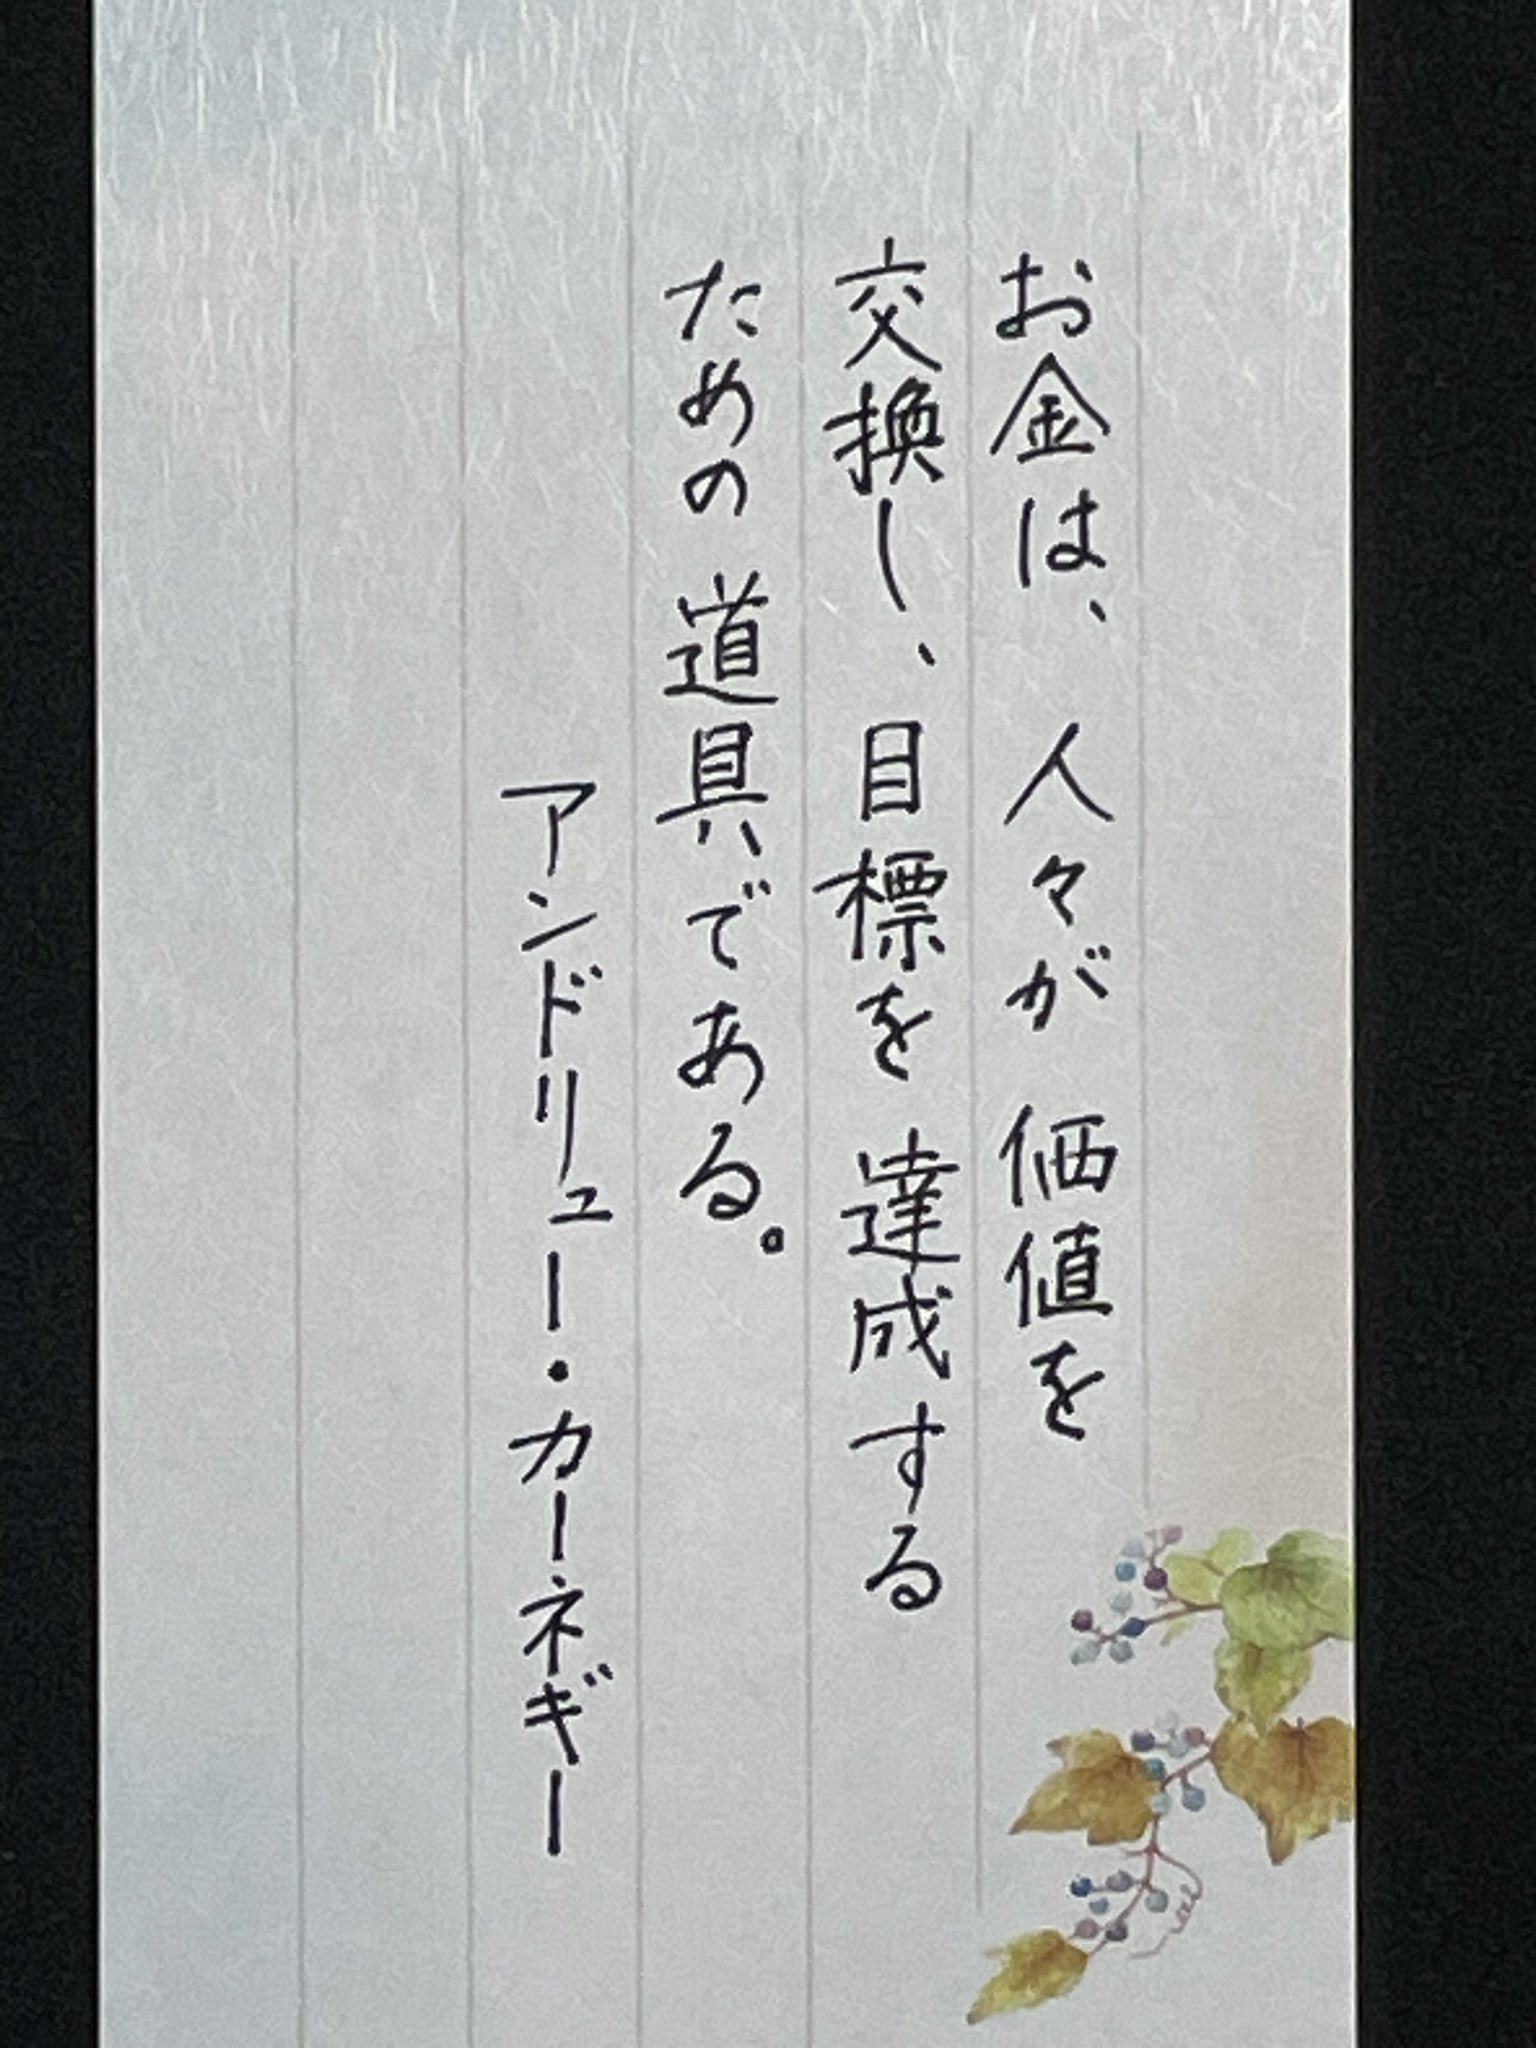 お金は、人々が価値を
交換し、目標を達成する
ための道具である。
アンドリュー・カーネギー